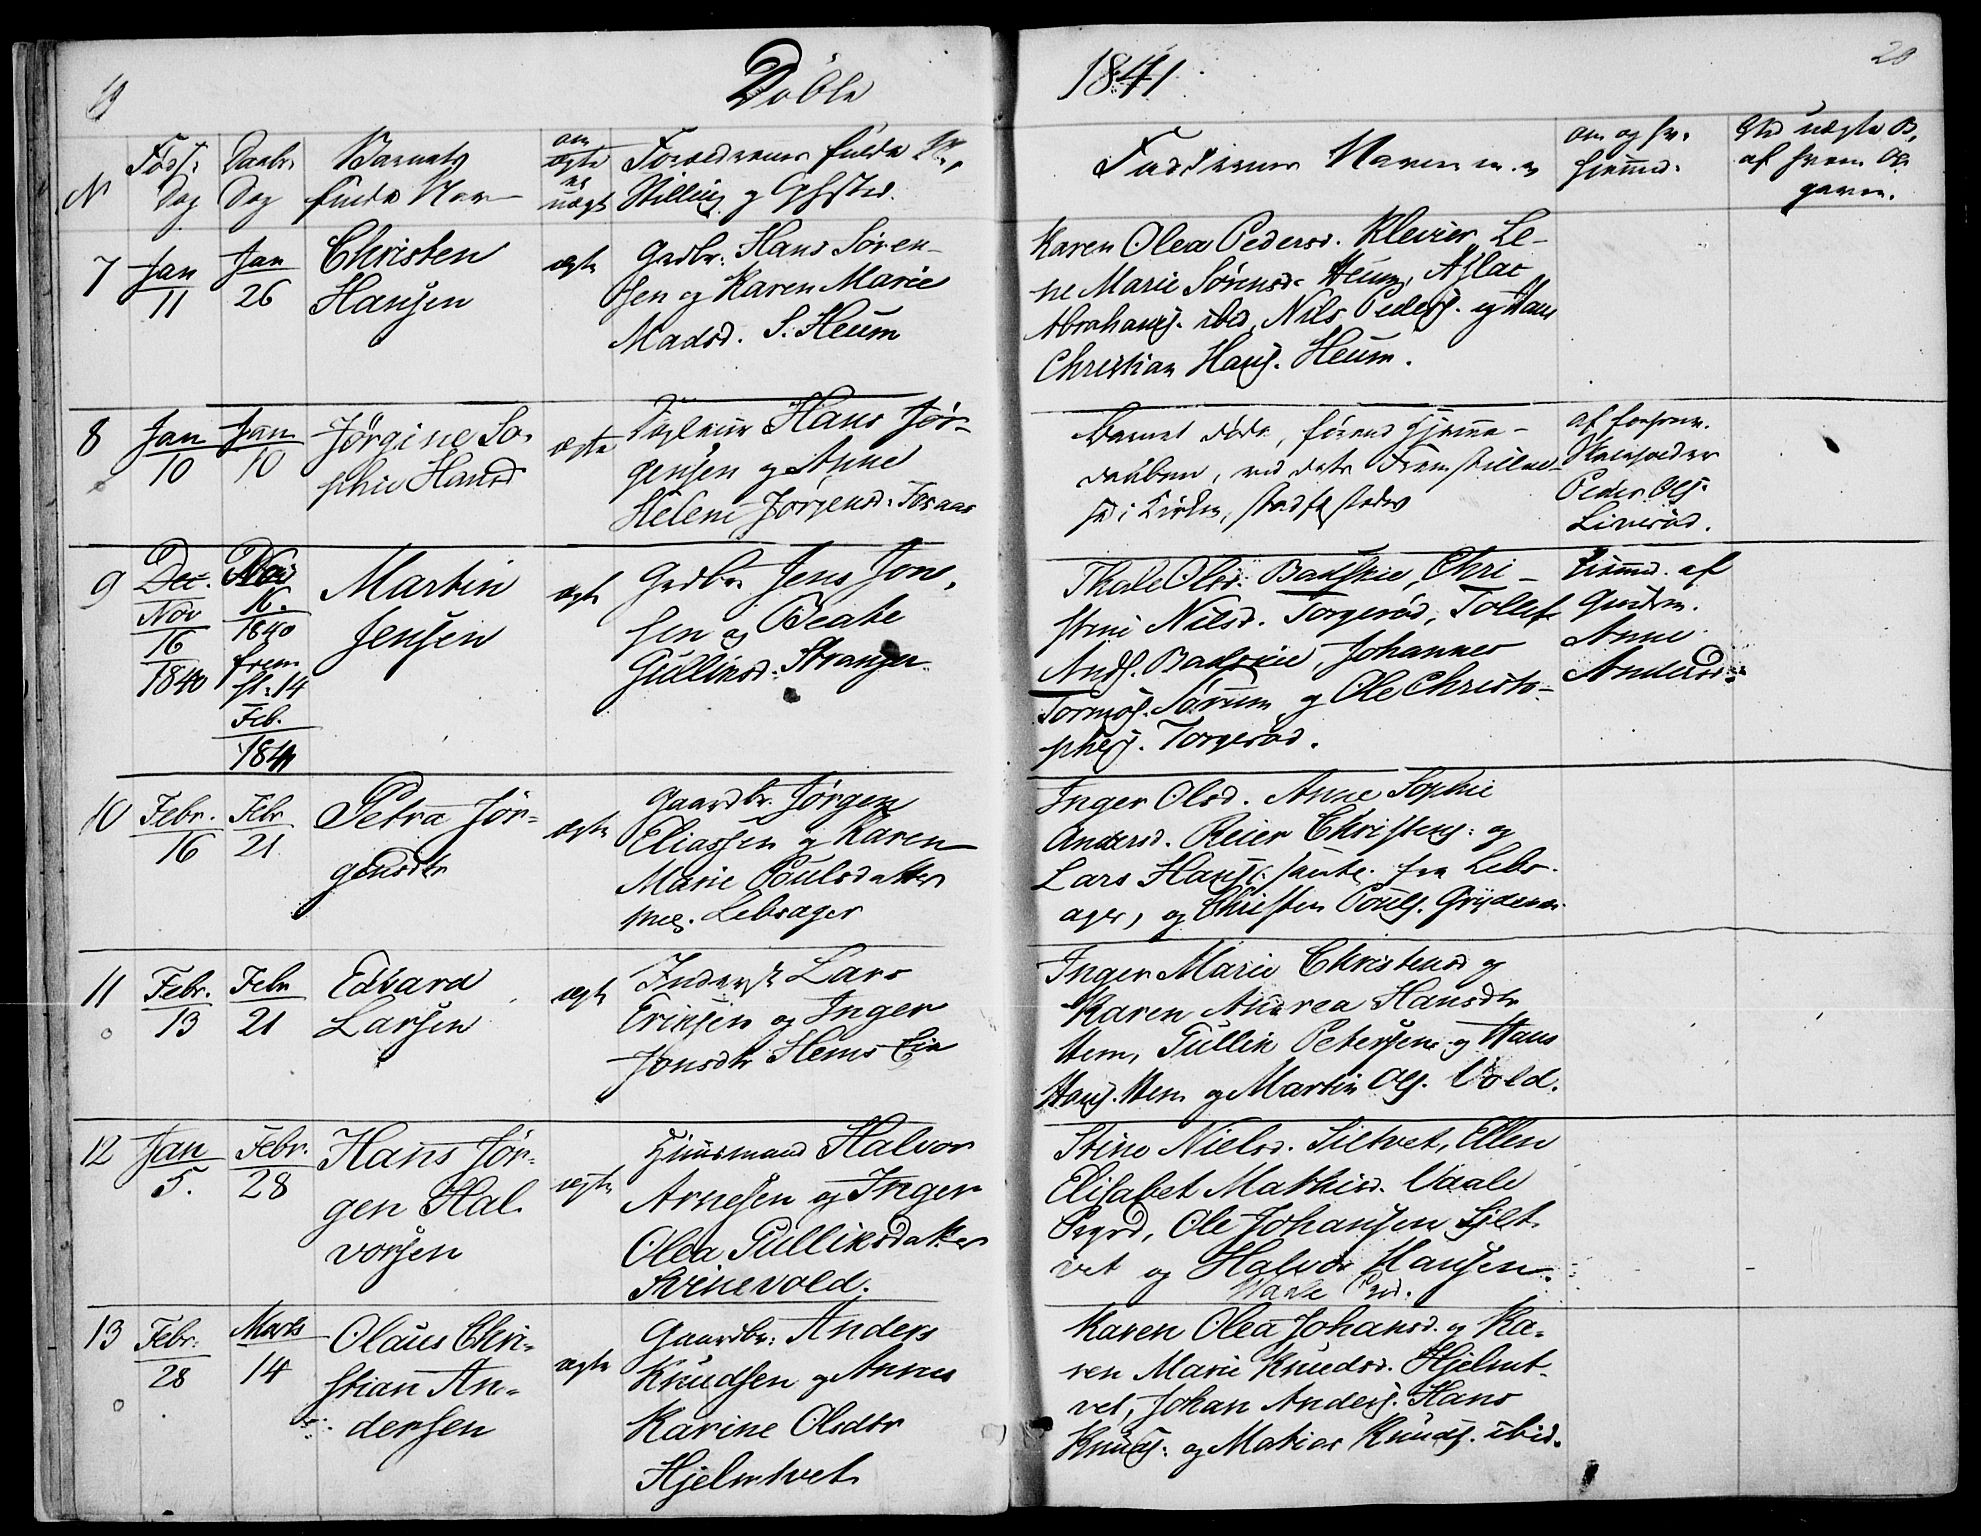 19
Döbte
1841
20
N
Føds:
Dag
Daabs
Dag
Barnets
fulde Navn
om
ægte
el
uægt
Forældrenes fulde N.,
Stilling og Opholdsted.
Faddernes Navne m. m
om og hv.
hiemmed.
af hvem
7
Jan
11
Jan
26
Christen
Hansen
ægte
Grdbr. Hans Søren-
sen og Karen Marie
Madsd. S. Heum
Karen Olea Pedersd. Klevier, Le-
ne Marie Sørensd. Heum, Aslac
Abrahams. ibid, Nils Peders. og Hans
Christian Hans. Heum.
8
Jan
10
Jan
10
Jørgine So-
phie Hansd
ægte
Hans Jør-
gensen og Anne
Helene Jørgensd.
Barnet døde, førend Hjemme-
daaben, ved dets Fremstillel-
se i Kirken, stadfæstedes
af
Peder Ols.
Liverød.
9
Dec.
Nov
16
1840
Nov
16.
1840
frem
st: 14
Feb.
1841
Martin
Jensen
ægte
Grdbr Jens Jon-
sen og Beate
Gulliksd. Stranger.
Thale Olsd. Badskie, Chri-
stine Nilsd. Torgerød, Tollef
Ands. Badskie, Johannes
Tormos. Sørum og Ole Christo-
phers. Torgerød.
hiemmed. af
Anne
Andersd.
10
Febr.
16
Febr
21
Petra Jør-
gensdtr
ægte
Gaardbr. Jørgen
Eliassen og Karen
Marie Poulsdatter
Lebsager
Inger Olsd. Anne Sophie
Andersd. Reier Christens. og
Lars Hans. samtl. fra Lebs-
ager, og Christen Pouls.
11
Febr.
13
Febr
21
Edvard
Larsen
ægte
Inderst Lars
Eriksen og Inger
Jonsdtr Hems Eie
Inger Marie Christensd og
Karen Andrea Hansdtr
Hem, Gullik Petersen og Hans
Hans. Hem og Martin Ols. Vold.
12
Jan
5.
Febr.
28
Hans Jør-
gen Hal-
vorsen
ægte
Huusmand Halvor
Arnesen og Inger
Olea Gulliksdatter
Kvinevold.
Stine Nielsd. Siltvet, Ellen
Elisabet Mathisd. Vaale
Prgrd, Ole Johansen Silt-
vet og Halvor Hansen.
Vaale Prd.
13
Febr.
28
Marts
14
Olaus Chri-
stian An-
dersen
ægte
Gaardbr. Anders
Knudsen og Anne
Karine Olsdtr
Hjelmtvet
Karen Olea Johansd. og Ka-
ren Marie Knudsd. Hjelmt-
vet, Johan Anders. Hans
Knuds. og Matias Knuds. ibid.